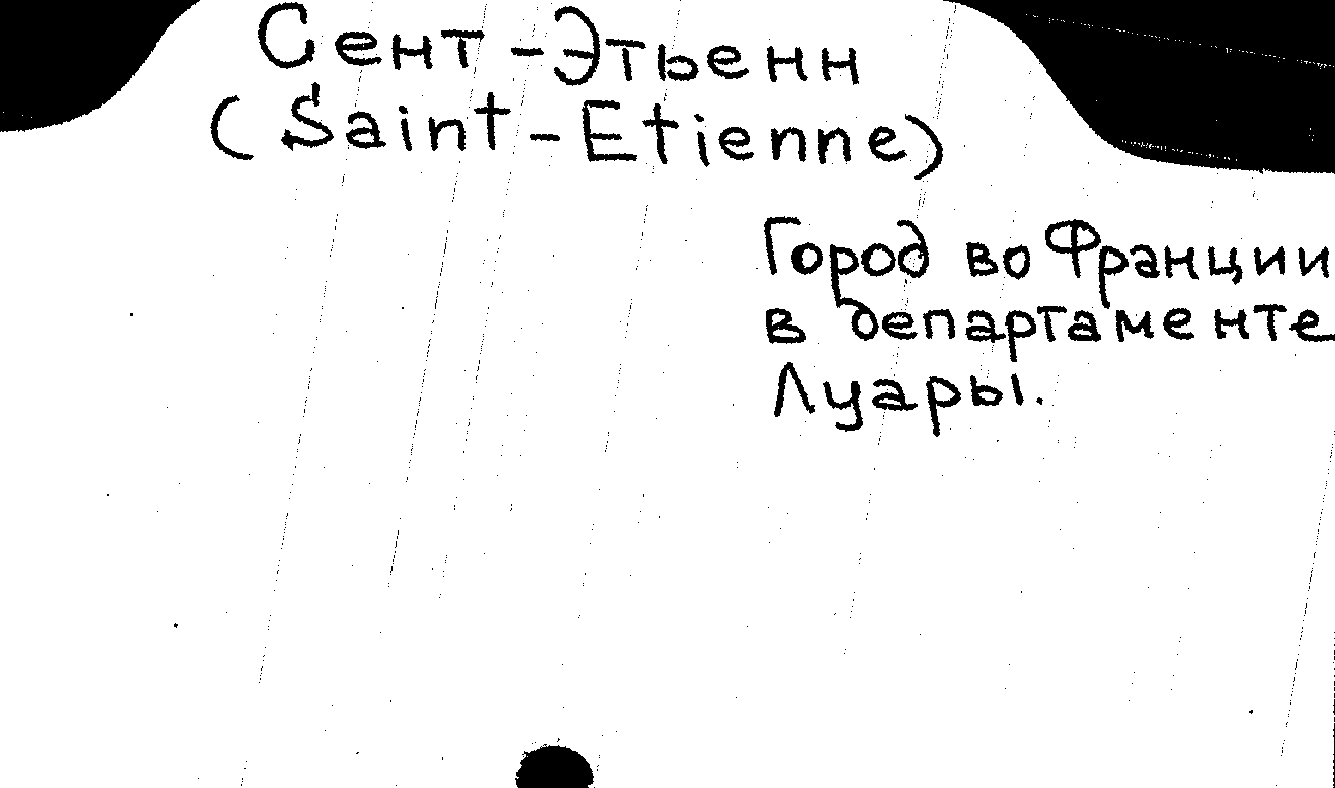 Сент-Этьенн
(Saint-Etienne)
Город во Франции
в департаменте
Луары.